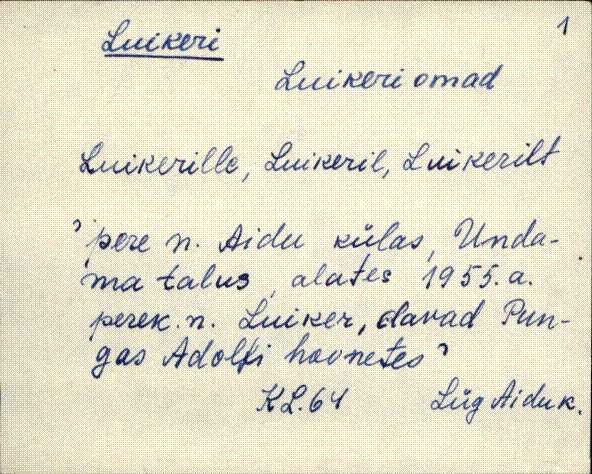 1
Luikeri
Luikeri omad
Luikerille, Luikeril, Luikerilt
'pere n. Aidu külas, Unda-
ma talus, alates 1955. a.
perek. n. Luiker, elavad Pun-
gas Adolfi hoonetes'
KL. 64 Lüg Aidu k.